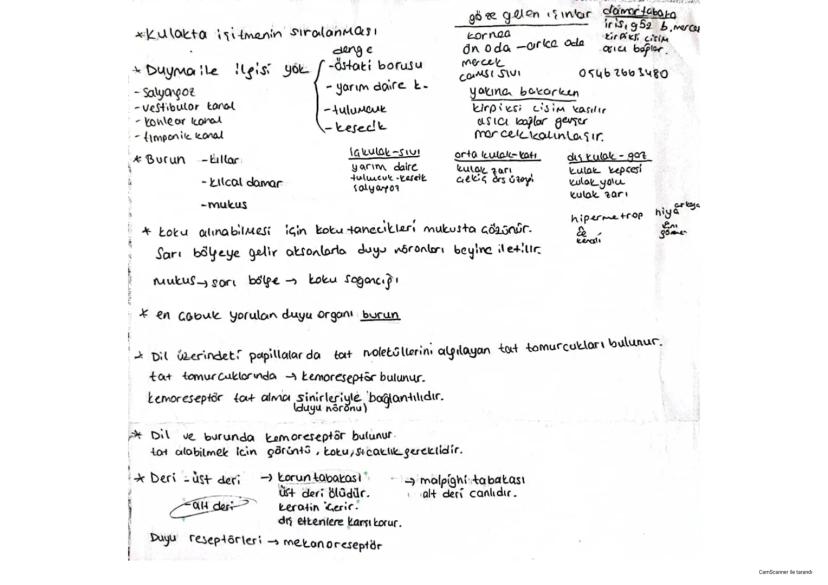 * Kulakta işitmenin sıralanması
* Duyma ile ilgisi yok
- salyangoz
- vestibular kanal
- kohlear kanal
- timpanik kanal
denge
- östaki borusu
- yarım daire k.
- tulumcuk
- kesecik
göze gelen ışınlar
kornea
ön oda - arka oda
mercek
camsı sıvı
damar tabaka
iris, göz b, mercek
kirpiksi cisim
asıcı bağlar.
0546 266 3480
yakına bakarken
kirpiksi cisim kasılır
asıcı bağlar gevşer
mercek kalınlaşır.
* Burun - kıllar
- kılcal damar
- mukus
iç kulak - sıvı
yarım daire
tulumcuk - kesecik
salyangoz
orta kulak - katı
kulak zarı
çekiç örs üzengi
dış kulak - gaz
kulak kepçesi
kulak yolu
kulak zarı
hipermetrop
* koku alınabilmesi için koku tanecikleri mukusta çözünür.
Sarı bölgeye gelir aksonlarla duyu nöronları beyine iletilir.
mukus → sarı bölge → koku soğancığı
* en çabuk yorulan duyu organı burun
* Dil üzerindeki papillalarda tat moleküllerini algılayan tat tomurcukları bulunur.
tat tomurcuklarında → kemoreseptör bulunur.
kemoreseptör tat alma sinirleriyle bağlantılıdır.
(duyu nöronu)
* Dil ve burunda kemoreseptör bulunur.
tat alabilmek için görüntü, koku, sıcaklık gereklidir.
* Deri - üst deri → korun tabakası → malpighi tabakası
üst deri ölüdür. alt deri canlıdır.
- alt deri keratin içerir.
dış etkenlere karşı korur.
Duyu reseptörleri → mekanoreseptör
CamScanner ile tarandı